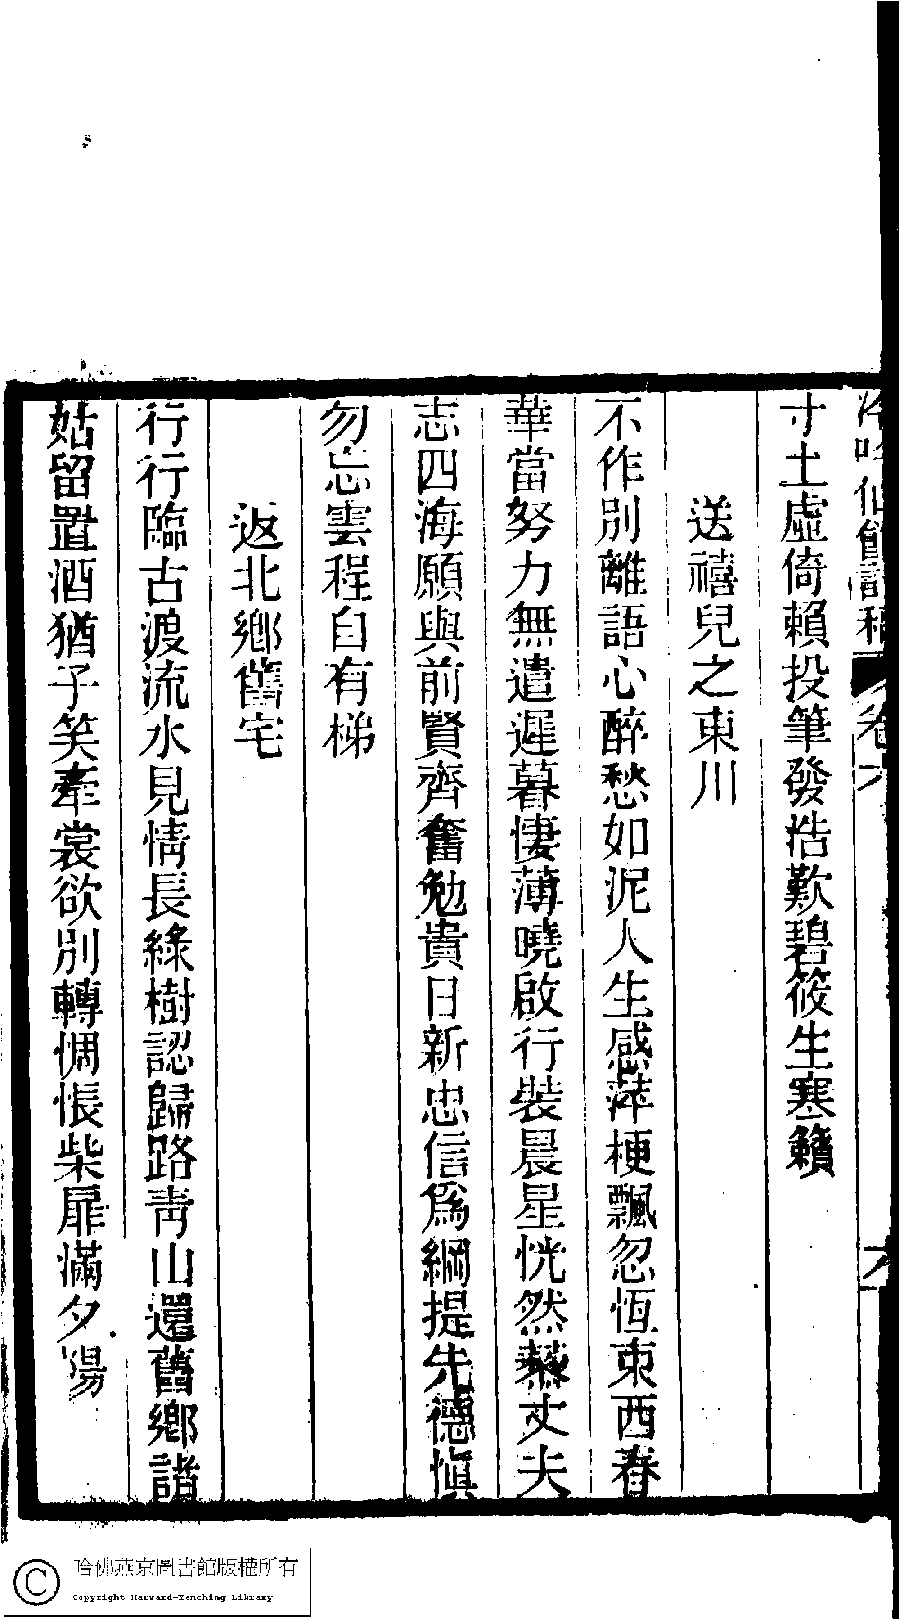 冷吟仙館詩稿 卷六
寸土虛倚賴投筆發浩歎碧筱生寒籟
送禧兒之東川
不作別離語心醉愁如泥人生感萍梗飄忽恆東西春
華當努力無遣遲暮悽薄曉啟行裝晨星恍然藜丈夫
志四海願與前賢齊奮勉貴日新忠信爲綱提先德愼
勿忘雲程自有梯
返北鄉舊宅
行行臨古渡流水見情長綠樹認歸路靑山還舊鄉諸
姑留置酒猶子笑牽裳欲別轉惆悵柴扉滿夕陽
哈佛燕京圖書館版權所有
Copyright Harvard-Yenching Library